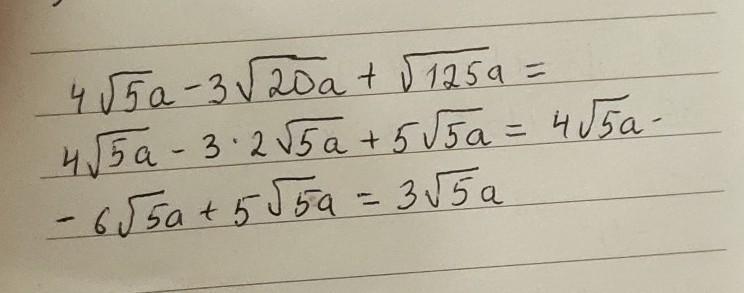 4√5a - 3√20a + √125a =
4√5a - 3·2√5a + 5√5a = 4√5a -
- 6√5a + 5√5a = 3√5a